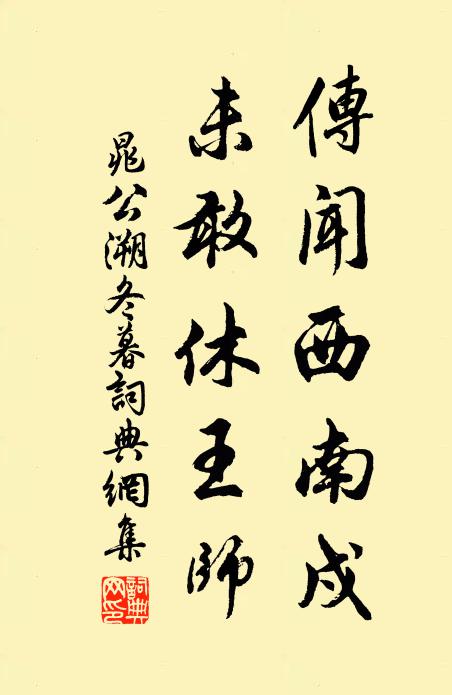 傳聞西南戍
未敢休王師
晁公溯冬暮詞典網集
詞典網印